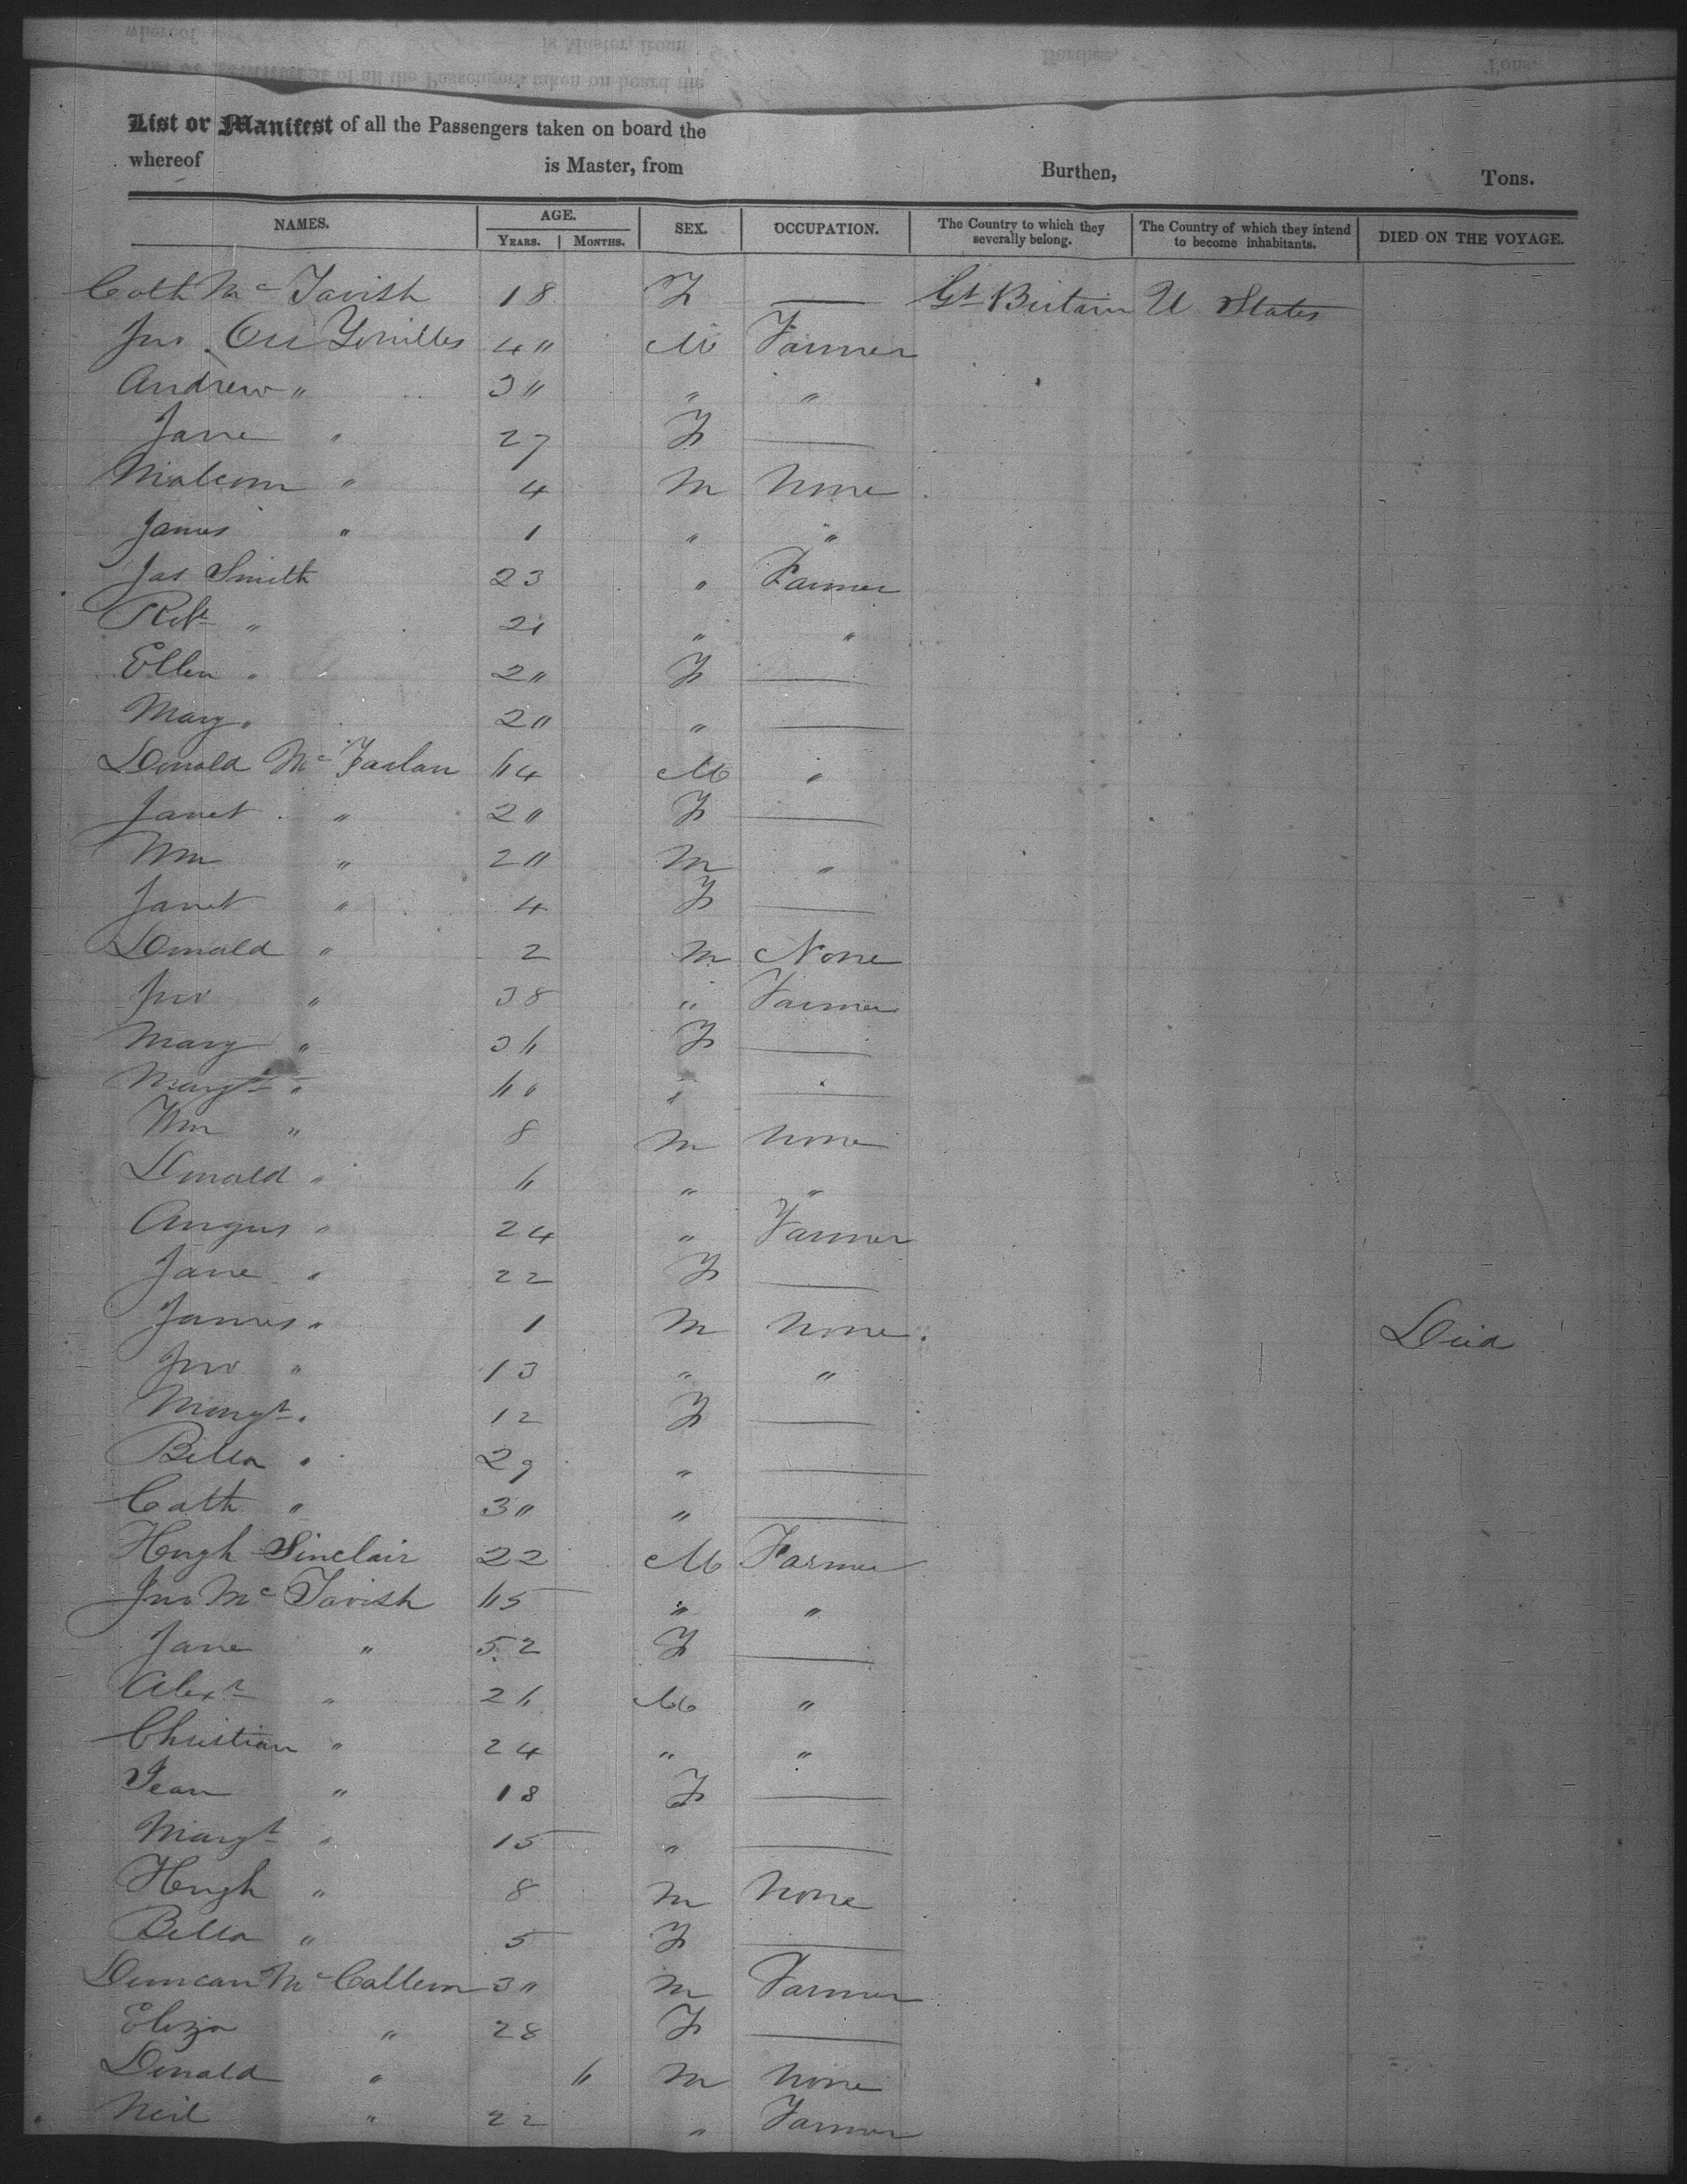 List or Manifest of all the Passengers taken on board the
whereof is Master, from Burthen, Tons.
NAMES. AGE. YEARS. MONTHS. SEX. OCCUPATION. The Country to which they severally belong. The Country of which they intend to become inhabitants. DIED ON THE VOYAGE.
Cath Mc Tavish 18 F — Gt Britain U States
Jno 4" M Farmer
Andrew " 3" " "
Jane " 27 F —
Malcom " 4 M None
James " 1 " "
Jas Smith 23 " Farmer
Robt " 21 " "
Ellen " 2" F —
Mary " 2" " —
Donald Mc Farlan 64 M "
Janet " 2" F —
Wm " 2" M "
Janet " 4 F —
Donald " 2 M None
Jno " 38 " Farmer
Mary " 36 F —
Margt " " —
Wm " 8 M None
Donald " 6 " "
Angus " 24 " Farmer
Jane " 22 F —
James " 1 M None Died
Jno " 13 " "
Margt " 12 F —
Bella " 29 " —
Cath " 3" " —
Hugh Sinclair 22 M Farmer
Jno Mc Tavish 65 " "
Jane " 52 F —
Alexr " 26 M "
Christian " 24 " "
Jean " 18 F —
Margt " 15 " —
Hugh " 8 M None
Bella " 5 F —
Duncan Mc Callum 3" M Farmer
Eliza " 28 F —
Donald " 6 M None
Neil " 22 " Farmer